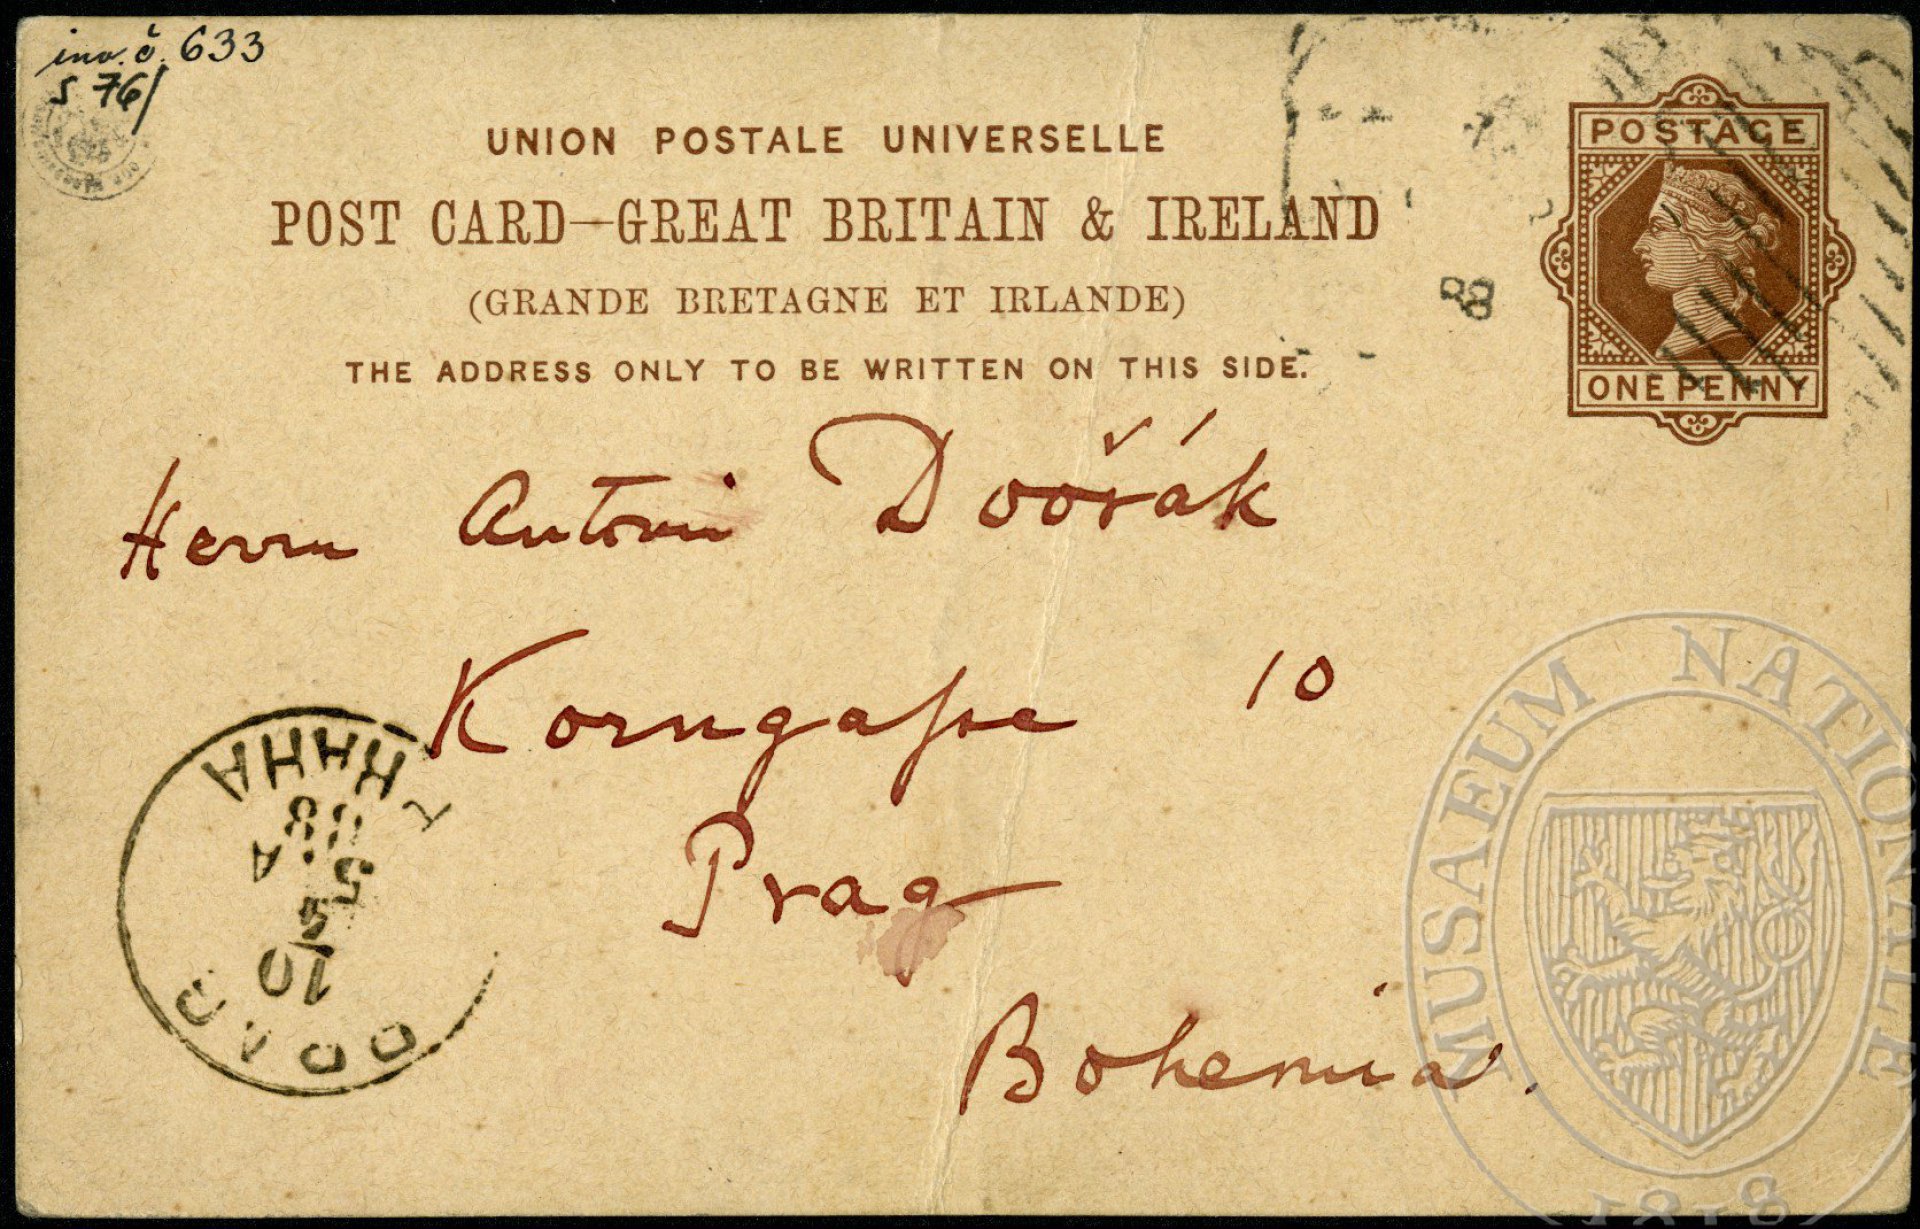 inv. č. 633
S 76/
UNION POSTALE UNIVERSELLE
POST CARD—GREAT BRITAIN & IRELAND
(GRANDE BRETAGNE ET IRLANDE)
THE ADDRESS ONLY TO BE WRITTEN ON THIS SIDE.
POSTAGE
ONE PENNY
88
Herrn Antonin Dvořák
Korngasse 10
Prag
Bohemia.
88
A
5
5
10
MUSAEUM NATIONALE
1818